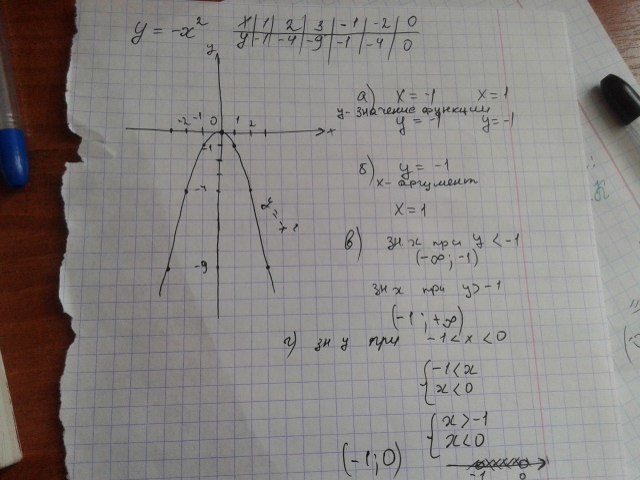 y = -x²
x 1 2 3 -1 -2 0
y -1 -4 -9 -1 -4 0
y
-2 -1 0 1 2
x
-1
-4
-9
а) x = -1 x = 1
y - значение функции
y = -1 y = -1
б) y = -1
x - аргумент
x = 1
в) зн x при y < -1
(-∞; -1)
зн x при y > -1
(-1; +∞)
г) зн y при -1 < x < 0
{ -1 < x
x < 0
{ x > -1
x < 0
(-1; 0)
-1 0